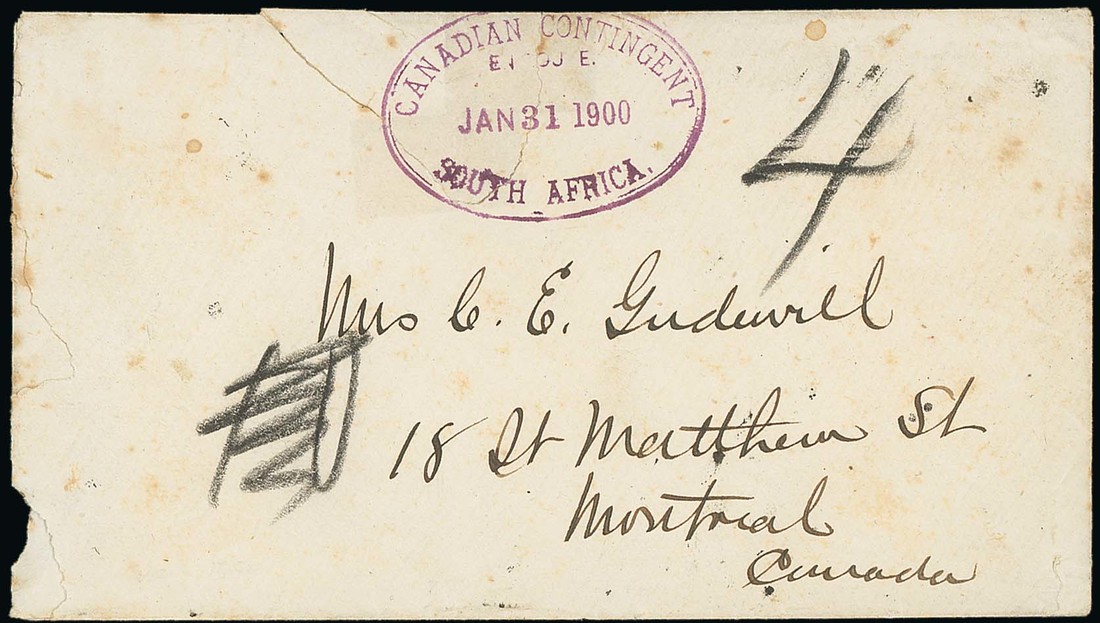 CANADIAN CONTINGENT
JAN 31 1900
SOUTH AFRICA.
4
Mrs C. E. Gudewill
18 St Matthew St
Montreal
Canada